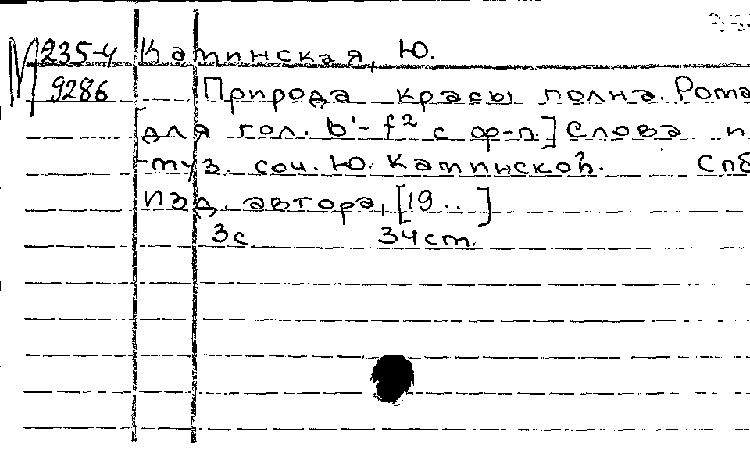 М 235-4 Каминская, Ю.
9286 Природа красы полна. Рома
[для гол. b'-f² с ф-п.] Слова и
муз. соч. Ю. Каминской. Спб
Изд. автора, [19..]
3с. 34 cm.